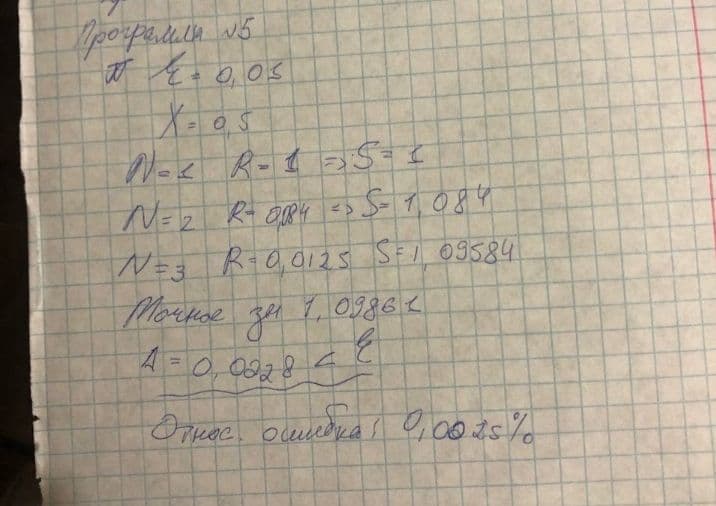 Программы №5
ξ = 0,05
X = 0,5
N=1 R=1 => S=1
N=2 R=0,084 => S=1,084
N=3 R=0,0125 S=1,09584
Точное зн 1,09861
Δ = 0,0028 < ξ
Относ. ошибка: 0,0025%